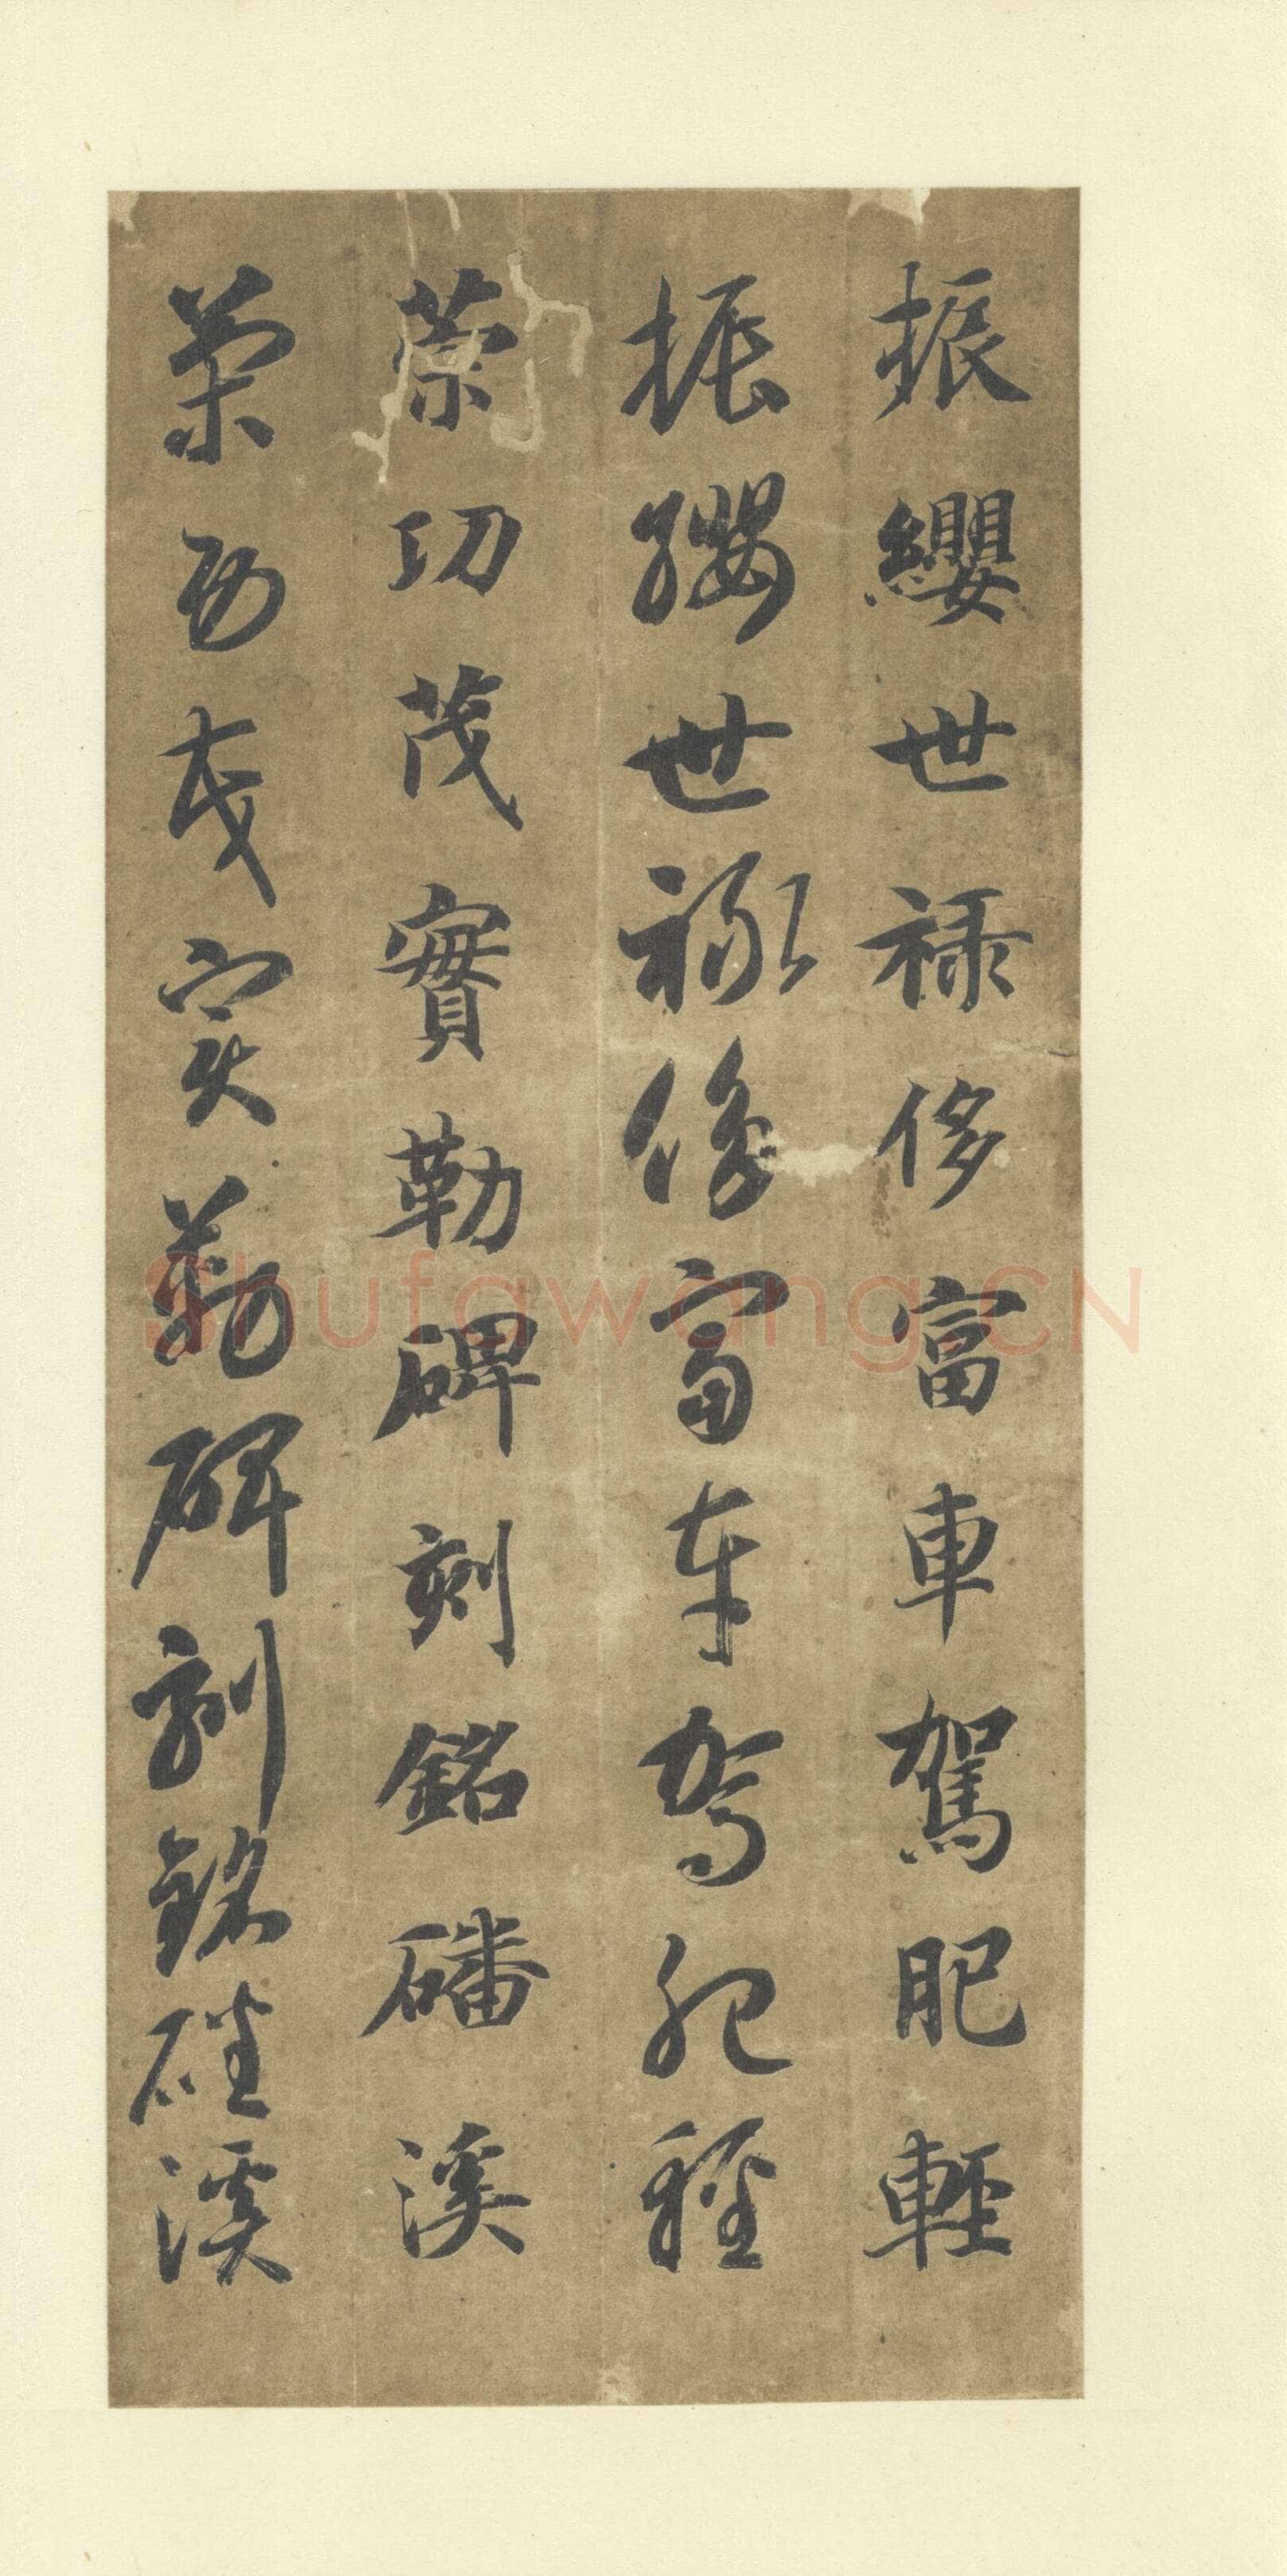 振纓世禄侈富車駕肥輕
振纓世禄侈富車駕肥輕
策功茂實勒碑刻銘磻溪
策功茂實勒碑刻銘磻溪
Shufawang.CN